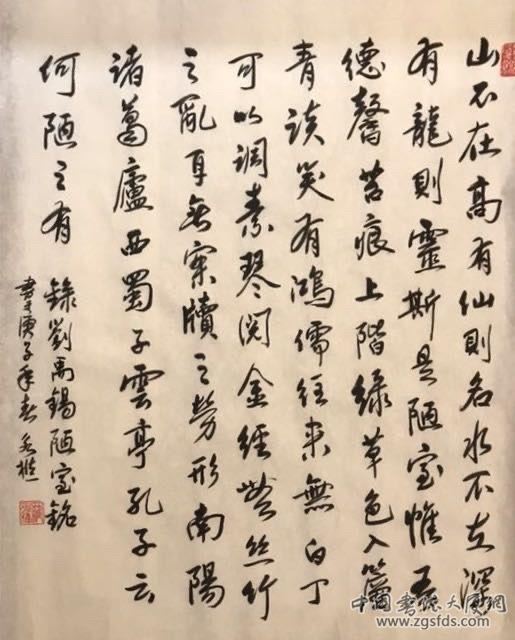 山不在高有仙則名水不在深
有龍則靈斯是陋室惟吾
德馨苔痕上階綠草色入簾
青談笑有鴻儒往來無白丁
可以調素琴閱金經無絲竹
之亂耳無案牘之勞形南陽
諸葛廬西蜀子雲亭孔子云
何陋之有
錄劉禹錫陋室銘
庚子年春
www.zgsfds.com